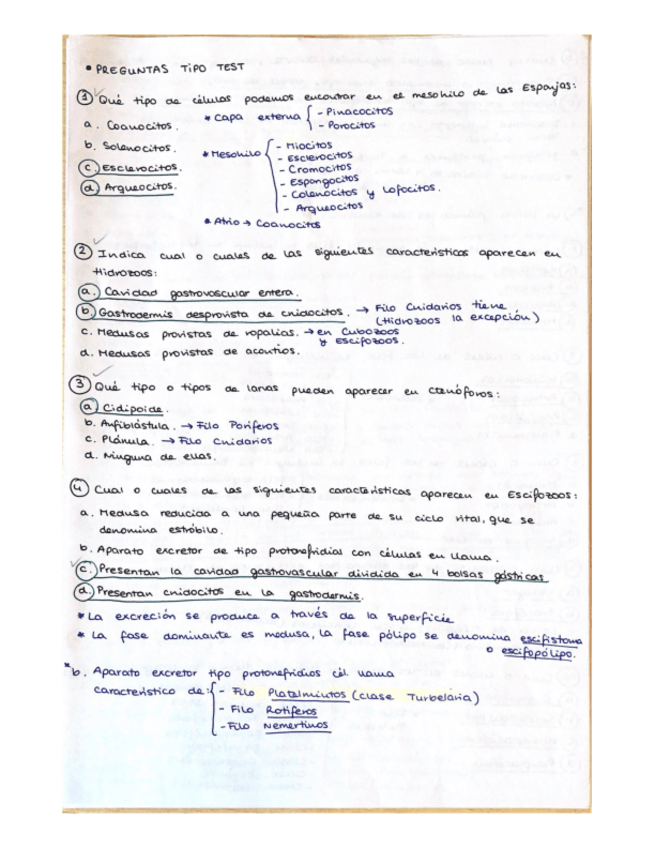 • PREGUNTAS TIPO TEST
① Qué tipo de células podemos encontrar en el mesohilo de las Esponjas:
a. Coanocitos.
* Capa externa { - Pinacocitos
- Porocitos
b. Solenocitos.
c. Esclerocitos.
d. Arqueocitos.
* Mesohilo { - Miocitos
- Esclerocitos
- Cromocitos
- Espongocitos
- Colenocitos y Lofocitos.
- Arqueocitos
* Atrio → Coanocitos
② Indica cual o cuales de las siguientes características aparecen en
Hidrozoos:
a. Cavidad gastrovascular entera.
b. Gastrodermis desprovista de cnidocitos. → Filo Cnidarios tiene
(Hidrozoos la excepción)
c. Medusas provistas de ropalias. → en Cubozoos
y Escifozoos.
d. Medusas provistas de acontios.
③ Qué tipo o tipos de larvas pueden aparecer en Ctenóforos:
a. Cidipoide.
b. Anfiblástula. → Filo Poríferos
c. Plánula. → Filo Cnidarios
d. Ninguna de ellas.
④ Cual o cuales de las siguientes características aparecen en Escifozoos:
a. Medusa reducida a una pequeña parte de su ciclo vital, que se
denomina estróbilo.
b. Aparato excretor de tipo protonefridios con células en llama.
c. Presentan la cavidad gastrovascular dividida en 4 bolsas gástricas
d. Presentan cnidocitos en la gastrodermis.
* La excreción se produce a través de la superficie
* La fase dominante es medusa, la fase pólipo se denomina escifistoma
o escifopólipo.
*b. Aparato excretor tipo protonefridios cél. llama
característico de: { - Filo Platelmintos (clase Turbelaria)
- Filo Rotíferos
- Filo Nemertinos